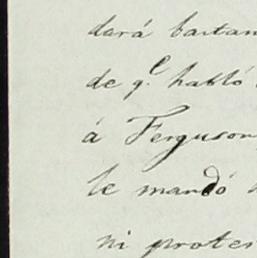 dará bastan
de q.e habló
á Ferguson
le mandó
ni protes